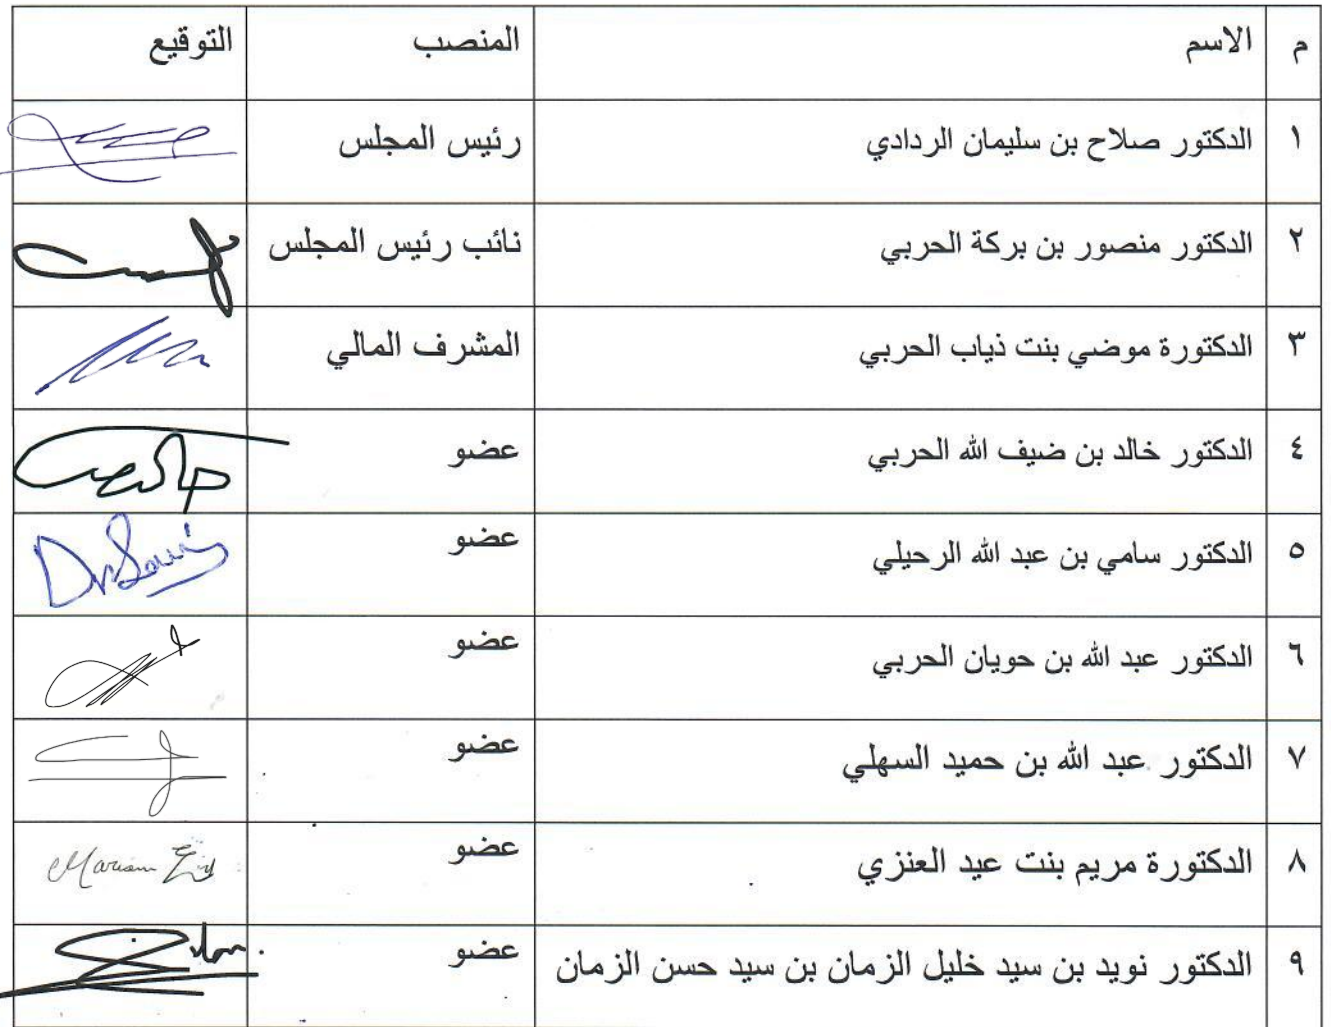 م الاسم المنصب التوقيع
١ الدكتور صلاح بن سليمان الردادي رئيس المجلس
٢ الدكتور منصور بن بركة الحربي نائب رئيس المجلس
٣ الدكتورة موضي بنت ذياب الحربي المشرف المالي
٤ الدكتور خالد بن ضيف الله الحربي عضو
٥ الدكتور سامي بن عبد الله الرحيلي عضو Dr Sami
٦ الدكتور عبد الله بن حويان الحربي عضو
٧ الدكتور عبد الله بن حميد السهلي عضو
٨ الدكتورة مريم بنت عيد العنزي عضو Mariam Eid
٩ الدكتور نويد بن سيد خليل الزمان بن سيد حسن الزمان عضو